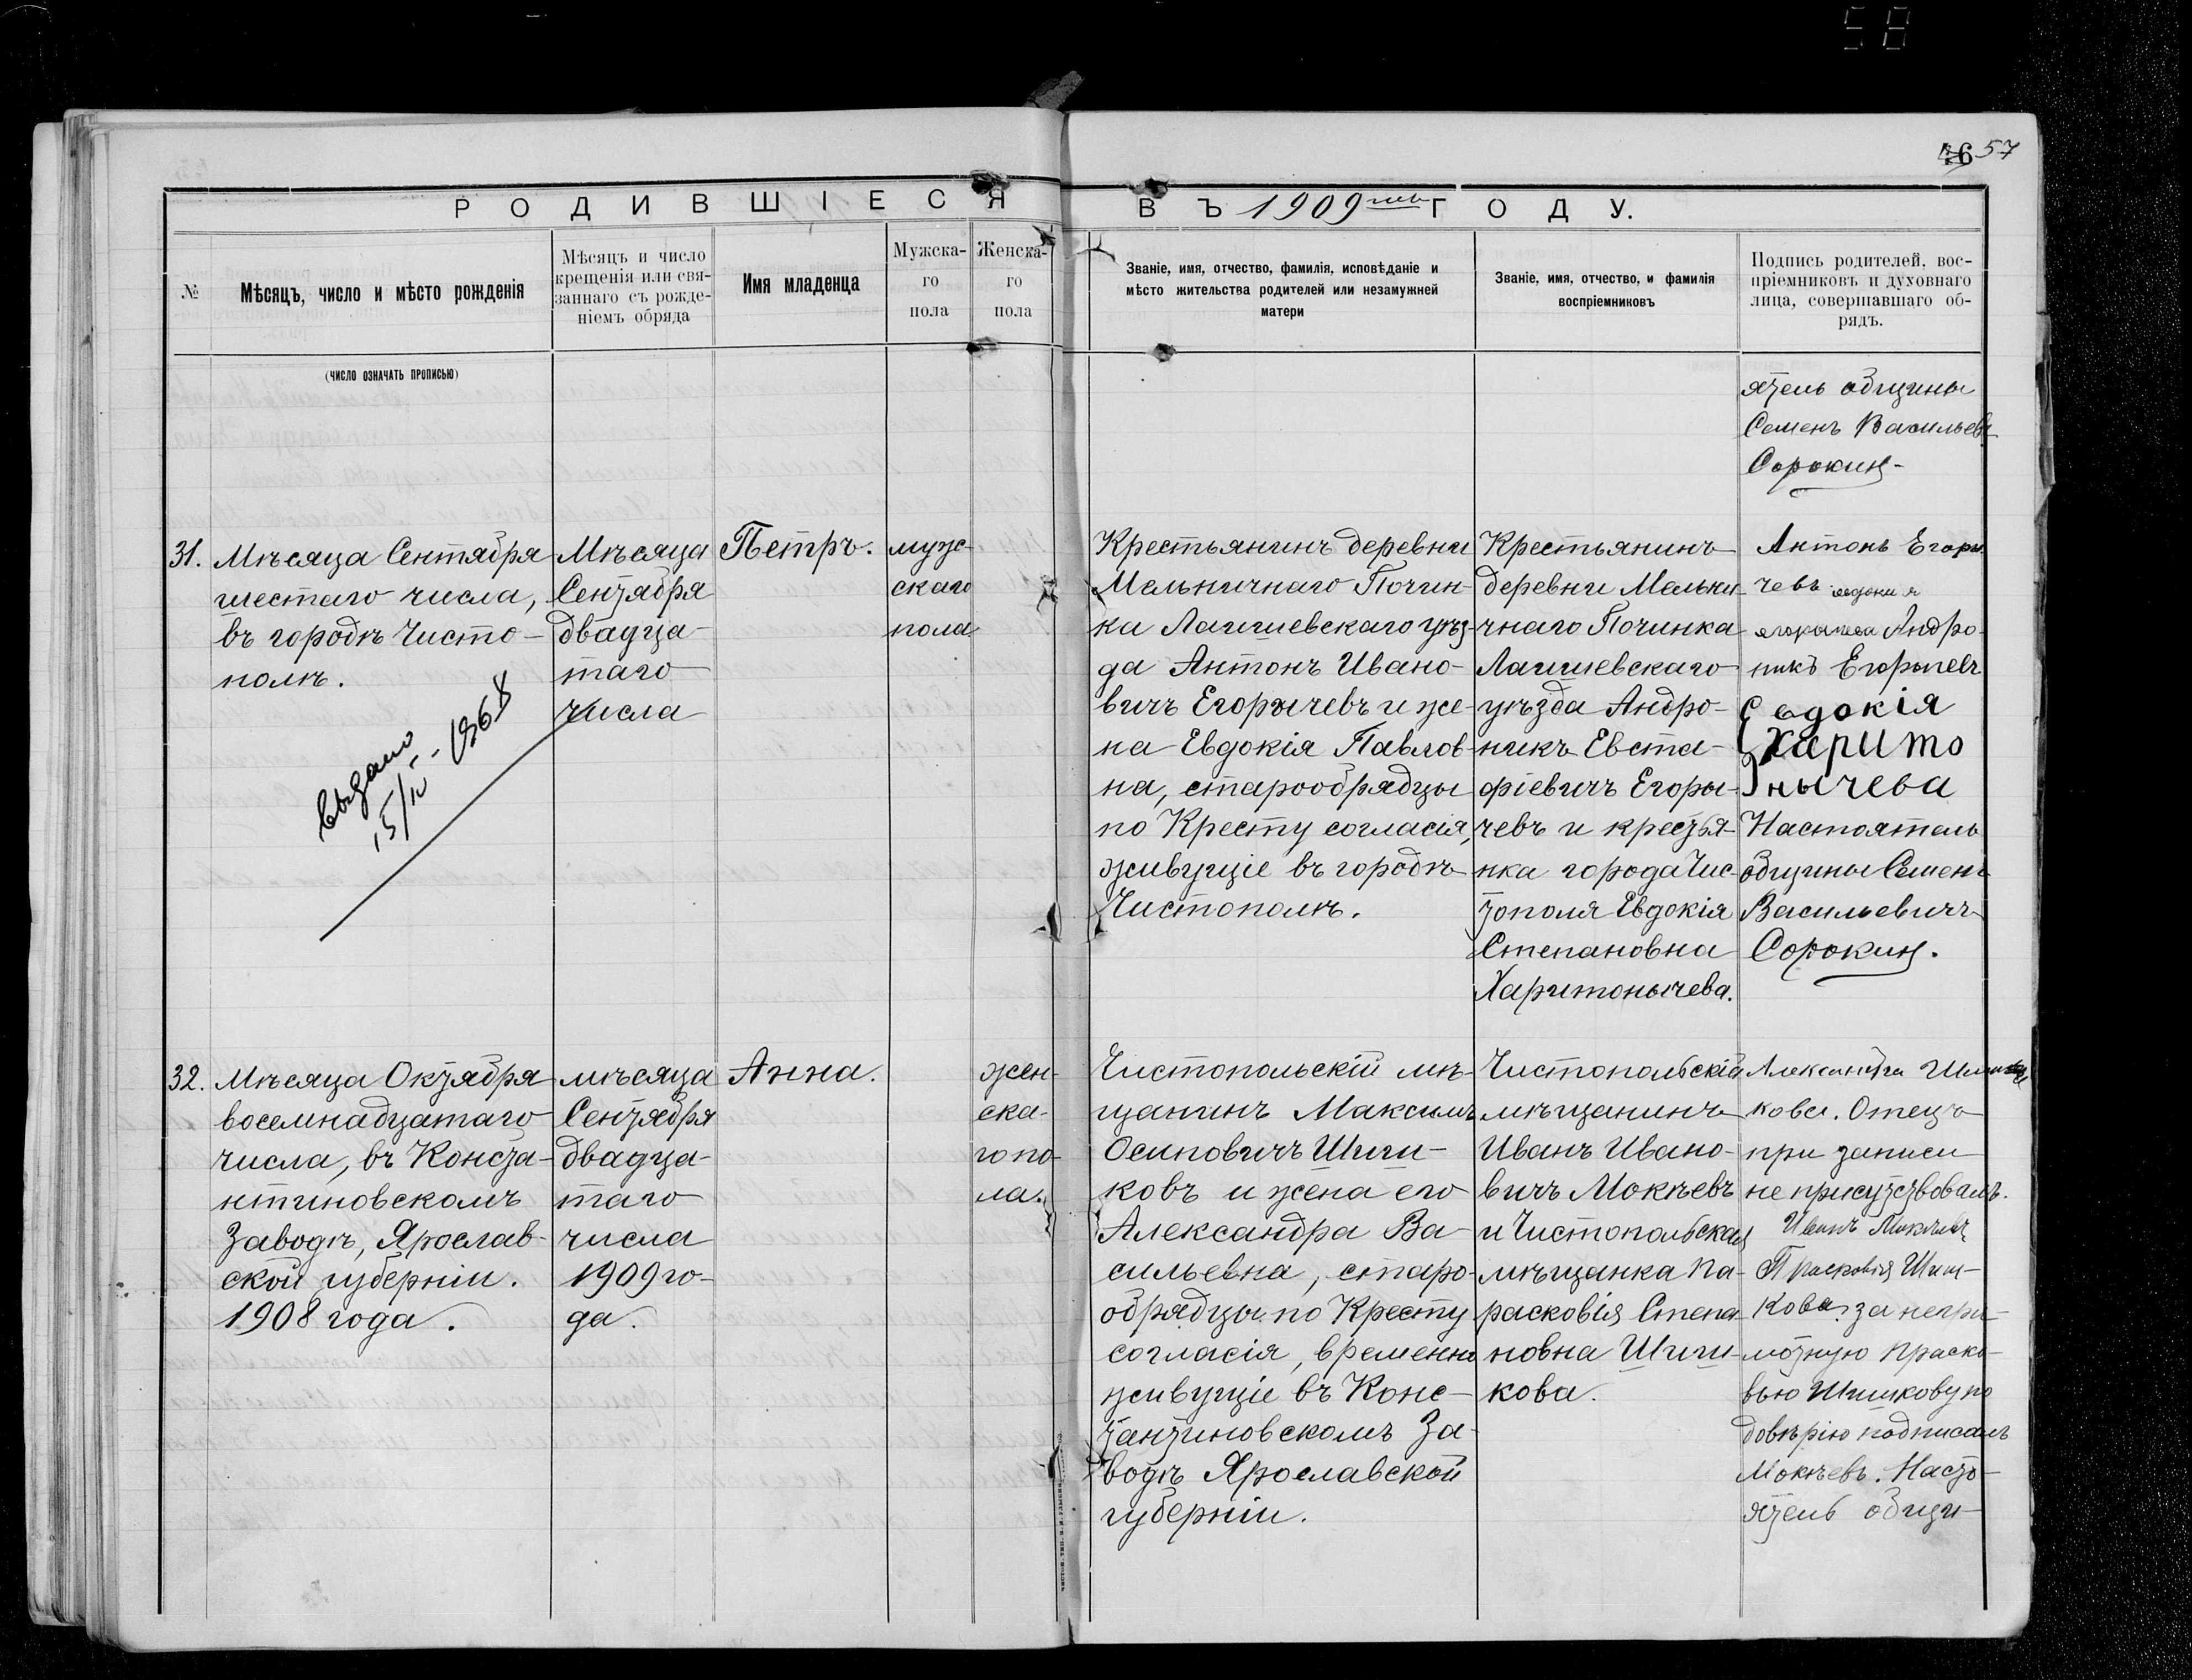 58
57
РОДИВШІЕСЯ
ВЪ 1909 ГОДУ.
№
Мѣсяцъ, число и мѣсто рожденія
Мѣсяцъ и число
крещенія или свя-
заннаго съ рожде-
ніемъ обряда
Имя младенца
Мужска-
го
пола
Женска-
го
пола
Званіе, имя, отчество, фамилія, исповѣданіе и
мѣсто жительства родителей или незамужней
матери
Званіе, имя, отчество, и фамилія
воспріемниковъ
Подпись родителей, вос-
пріемниковъ и духовнаго
лица, совершавшаго об-
рядъ.
(число означать прописью)
ятель общины
Семенъ Васильев
Сорокин
31.
Мѣсяца Сентября
шестаго числа,
въ городѣ Чисто-
полѣ.
выдано
15/IV - 1968
Мѣсяца
Сентября
двадца-
таго
числа
Петръ.
муж-
скаго
пола
Крестьянинъ деревни
Мельничнаго Почин-
ка Лаишевскаго уѣз-
да Антонъ Ивано-
вичъ Егорычевъ и же-
на Евдокія Павлов-
на, старообрядцы
по Кресту согласія,
живущіе въ городѣ
Чистополѣ.
Крестьянинъ
деревни Мельни-
чнаго Починка
Лаишевскаго
уѣзда Андро-
никъ Евста-
фіевичъ Егоры-
чевъ и крестья-
нка города Чис-
тополя Евдокія
Степановна
Харитонычева.
Антонъ Егоры
чевъ евдокия
Андро-
никъ Егорычевъ
Евдокія
Харито
нычева
Настоятель
общины Семенъ
Васильевичъ
Сорокин.
32.
Мѣсяца Октября
восемнадцатаго
числа, въ Конста-
нтиновскомъ
Заводѣ, Ярослав-
ской губерніи.
1908 года.
мѣсяца
Сентября
двадца-
таго
числа
1909 го-
да.
Анна.
жен-
ска-
го по-
ла.
Чистопольскій мѣ-
щанинъ Максимъ
Осиповичъ Шиш-
ковъ и жена его
Александра Ва-
сильевна, старо-
обрядцы по Кресту
согласія, временно
живущіе въ Конс-
тантиновскомъ За-
водѣ Ярославской
губерніи.
Чистопольскій
мѣщанинъ
Иванъ Ивано-
вичъ Мокѣевъ
и Чистопольская
мѣщанка Па-
расковія Степа-
новна Шиш-
кова.
Александра Шиш
кова. Отецъ
при записи
не присутствовалъ.
Иванъ Мокѣевъ
Прасковія Шиш-
кова. за негра-
мотную Праско-
вью Шишкову по
довѣрію подписалъ
Мокѣевъ. Насто-
ятель общи-